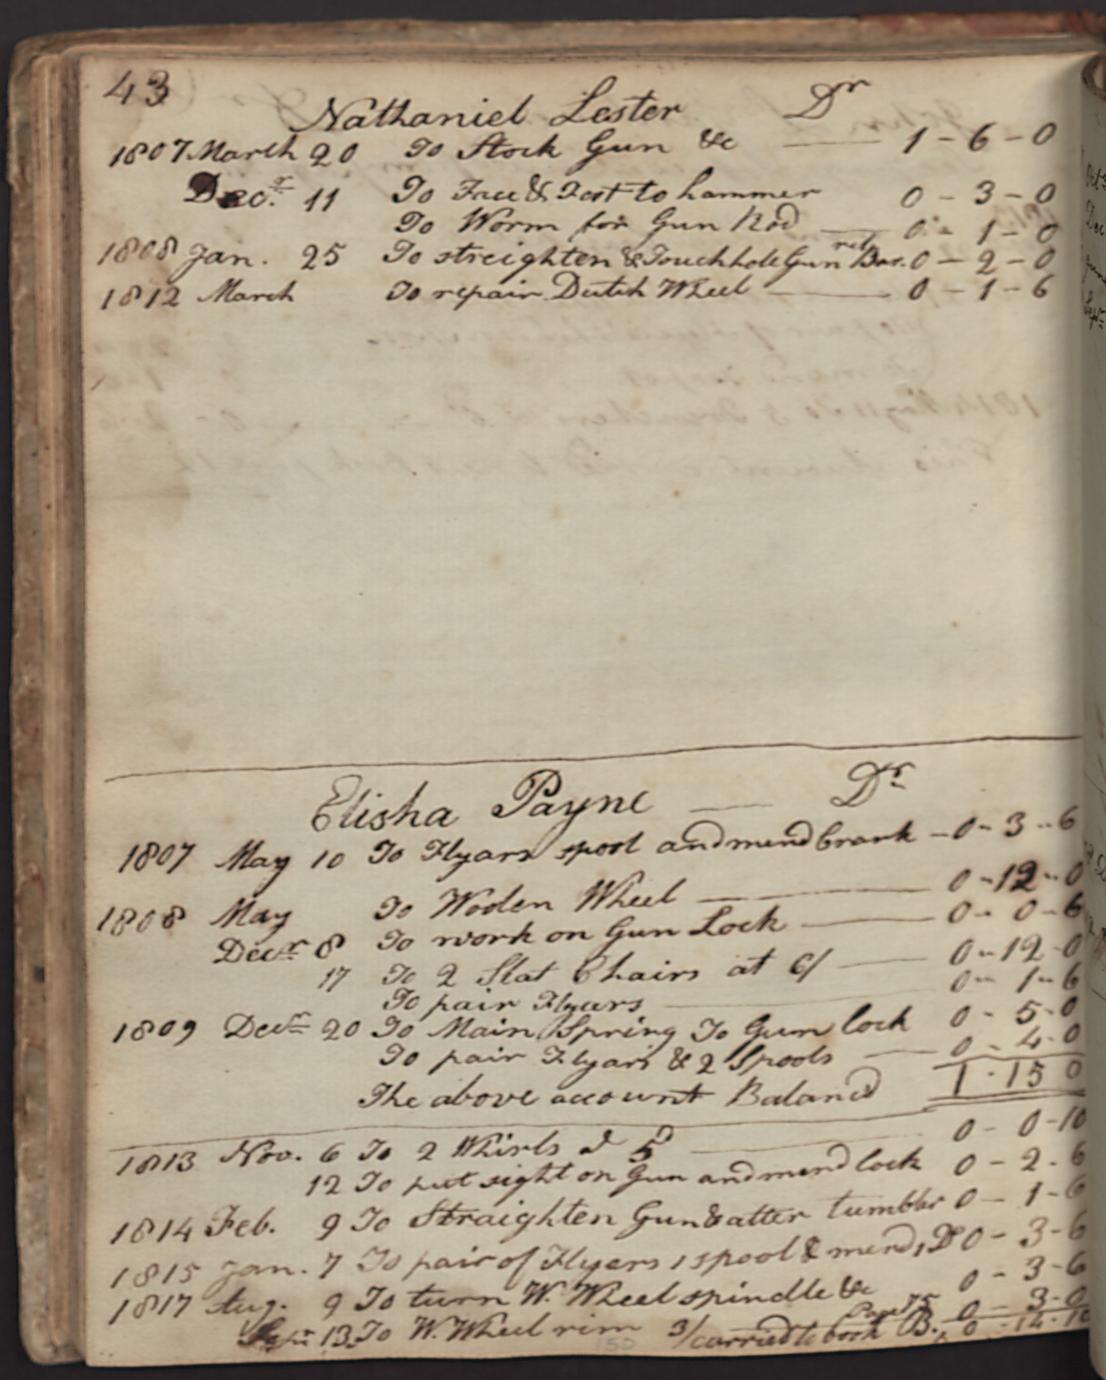 43
Nathaniel Lester Dr
1807 March 20 To Stock Gun &c 1-6-0
Decr. 11 To Face & Fest to hammer 0-3-0
To Worm for Gun Rod 0-1-0
1808 Jan. 25 To streighten & Touchhole Gun Barrel 0-2-0
1812 March To repair Dutch Wheel 0-1-6
Elisha Payne Dr
1807 May 10 To Flyars spool and mend Crank 0-3-6
1808 May To Woolen Wheel 0-12-0
Decr 8 To work on Gun Lock 0-0-6
17 To 2 Slat Chairs at 6/ 0-12-0
To pair Flyars 0-1-6
1809 Decr 20 To Main Spring To Gun lock 0-5-0
To pair Flyars & 2 Spools 0-4-0
The above account Balanced 1-15 0
1813 Nov. 6 To 2 Whirls 5d 0-0-10
12 To put sight on Gun and mend lock 0-2-6
1814 Feb. 9 To Straighten Gun & alter tumbler 0-1-6
1815 Jan. 7 To pair of Flyers 1 spool & mend, Do 0-3-6
1817 Aug. 9 To turn W. Wheel spindle &c 0-3-6
Sepr 13 To W. Wheel rim 3/ 0-3-0
carried to book B. Page 75 0-14-10